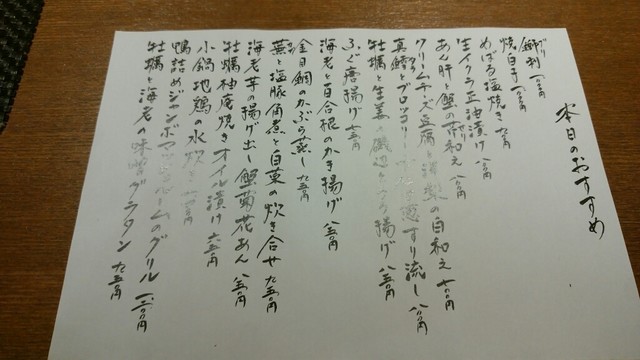 本日のおすすめ
鰤刺 一、〇〇〇円
焼白子 一、〇〇〇円
めばる塩焼き 九五〇円
生イクラ正油漬け 八〇〇円
あん肝と蟹の和え 八〇〇円
クリームチーズ豆腐と洋梨の白和え 七〇〇円
真鱈とブロッコリー すり流し 八〇〇円
牡蠣と生姜の 揚げ 八五〇円
ふぐ唐揚げ 九五〇円
海老と百合根のかき揚げ 八五〇円
金目鯛のかぶら蒸し 九五〇円
蕪と塩豚角煮と白菜の炊き合せ 九五〇円
海老芋の揚げ出し蟹菊花あん 八五〇円
牡蠣柚庵焼きオイル漬け 六五〇円
小鍋地鶏の水炊き
鴨詰めジャンボマッシュルームのグリル 一、二〇〇円
牡蠣と海老の味噌グラタン 九五〇円